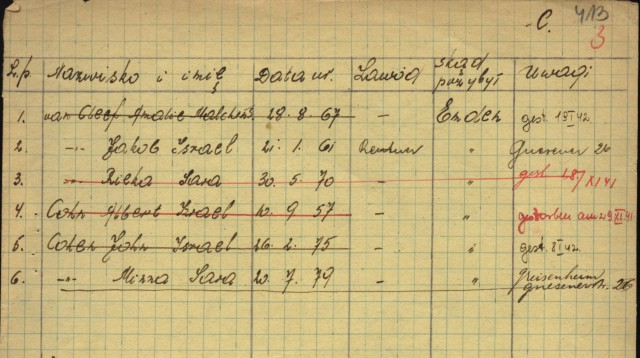 C. 413
3
L.p. Nazwisko i imię Data ur. Zawód skąd przybył Uwagi
1. van Cleef Amalie Malchen 28. 8. 67 — Emden gest. 19 I 42.
2. -„- Jakob Israel 21. 1. 61 Rentner „ Gnesener 26
3. -„- Ricka Sara 30. 5. 70 — „ gest. 18/XI 41
4. Cohn Albert Israel 10. 9. 57 — „ gestorben am 29 XI 41
5. Cohen John Israel 26. 2. 75 — „ gest. 8 II 42.
6. -„- Minna Sara 20. 7. 79 — „ Greisenheim
Gnesenerstr. 26